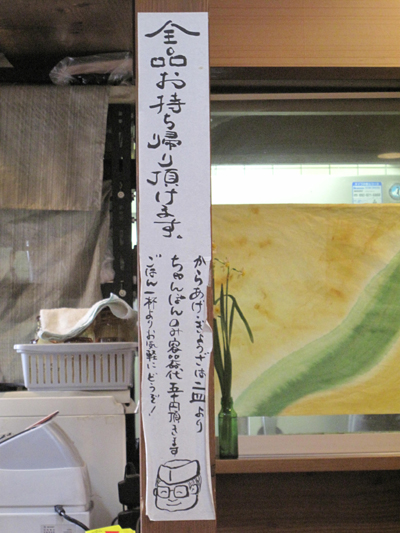 全品お持ち帰り頂けます。
からあげ・ぎょうざは二皿より
ちゃんぽんのみ容器代五十円頂きます
ごはん一杯よりお気軽にどうぞ！